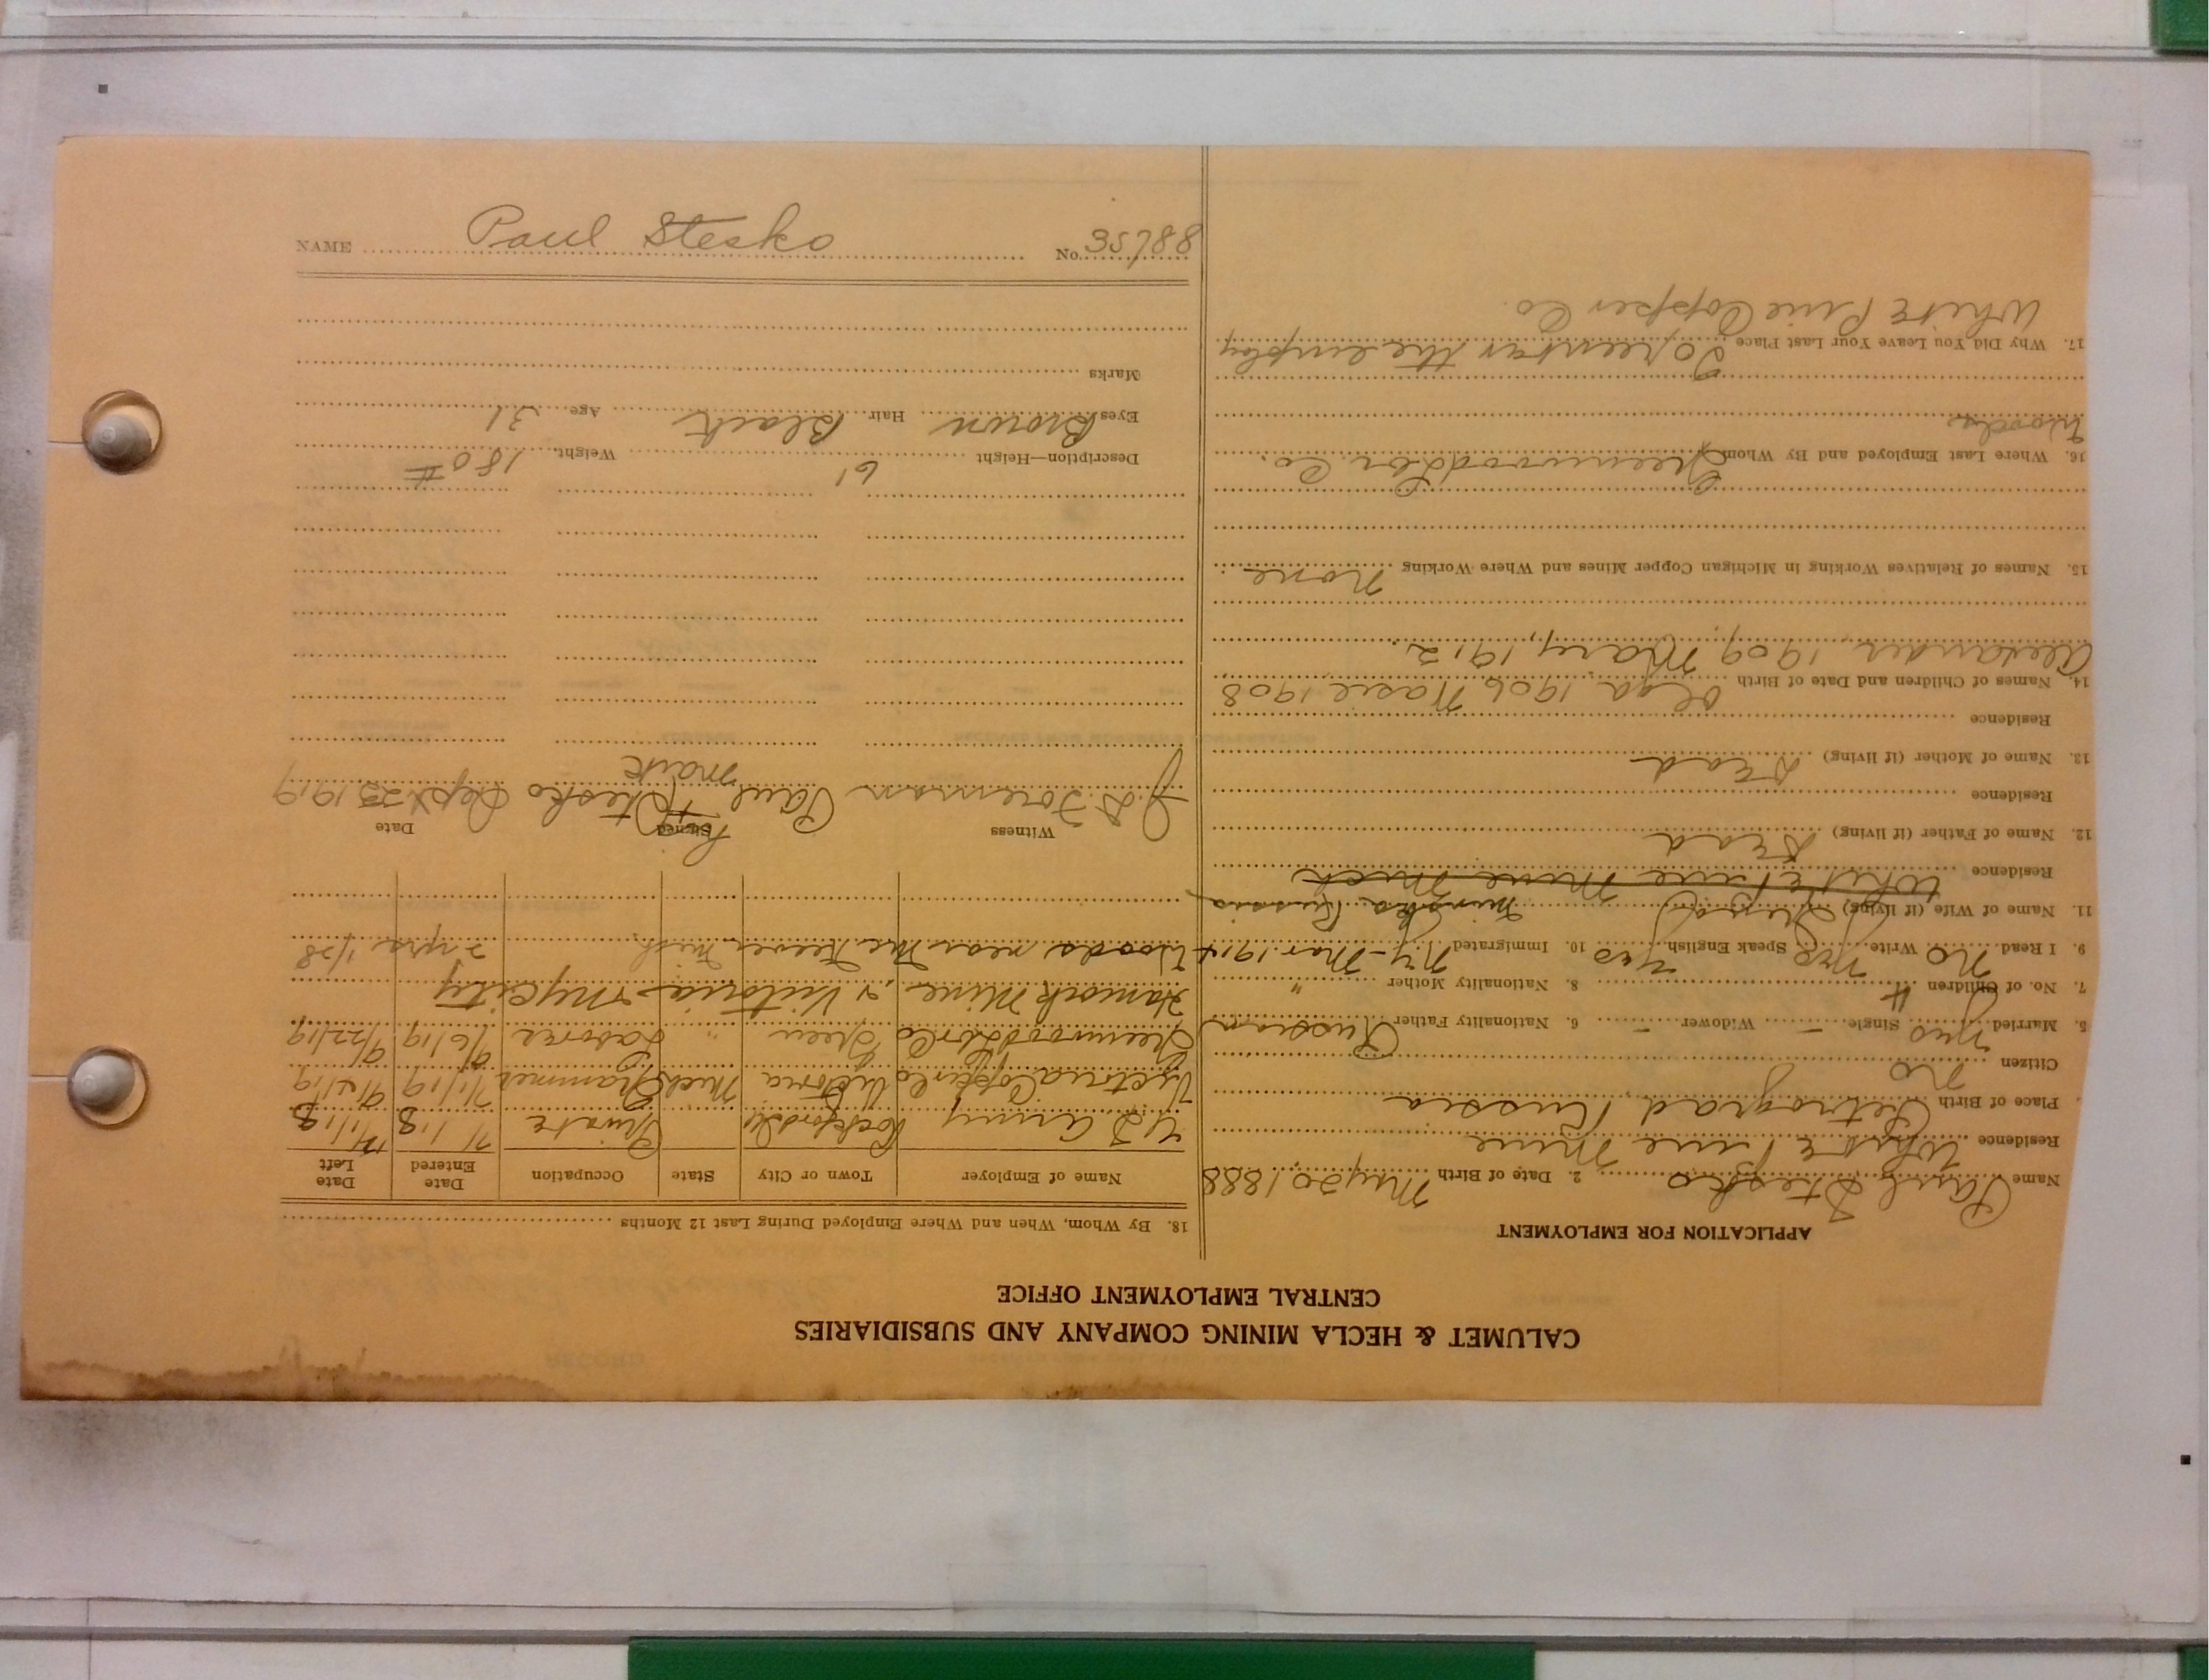 NAME Paul Stesko No. 35788
CALUMET & HECLA MINING COMPANY AND SUBSIDIARIES
CENTRAL EMPLOYMENT OFFICE
APPLICATION FOR EMPLOYMENT
Name Paul Stesko 2. Date of Birth May 20 1888
Residence White Pine Mine
Place of Birth Petrograd, Russia
Citizen No
5. Married Yes Single – Widower – 6. Nationality Father Russian
7. No. of Children 4 8. Nationality Mother "
9. I Read No Write No Speak English Yes 10. Immigrated N.Y. - Mar. 1914
11. Name of Wife (if living) Minska Russia
Residence White Pine Mine Mich
12. Name of Father (if living) Dead
Residence
13. Name of Mother (if living) Dead
Residence
14. Names of Children and Date of Birth Olga 1906 Nasie 1908
Alexander 1909, Mary, 1912.
15. Names of Relatives Working in Michigan Copper Mines and Where Working None
16. Where Last Employed and By Whom Greenwood Lbr Co.
Woods
17. Why Did You Leave Your Last Place To reenter the employ
White Pine Copper Co.
18. By Whom, When and Where Employed During Last 12 Months
Name of Employer Town or City State Occupation Date Entered Date Left
U S Army Rockford Ill Private 7/1/18 12/1/18
Victoria Copper Co Victoria Mich Trammer 7/1/19 9/4/19
Greenwood Lbr Co Green " Laborer 9/6/19 9/22/19
Hancock Mine & Victoria
Woods near McKeever Mich. 2 yrs
Witness Signed Date
J. D. Foremson Paul + Stesko Sept. 23 1919
mark
Description—Height 6' Weight 180 #
Eyes Brown Hair Black Age 31
Marks